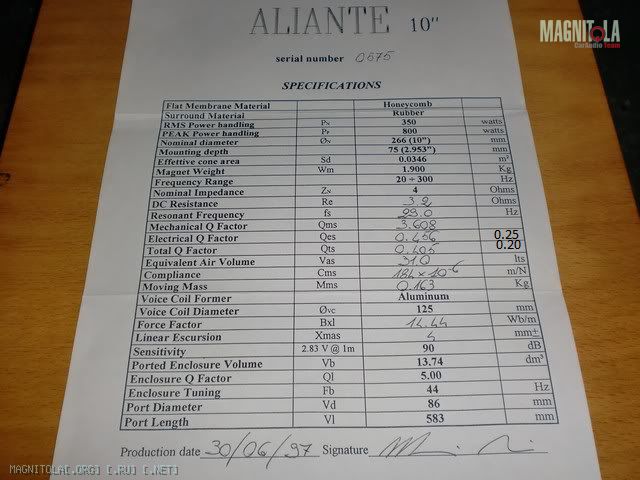 ALIANTE 10"
MAGNITOLA
CarAudio Team
serial number 0675
SPECIFICATIONS
Flat Membrane Material Honeycomb
Surround Material Rubber
RMS Power handling PN 350 watts
PEAK Power handling PP 800 watts
Nominal diameter ØN 266 (10") mm
Mounting depth 75 (2.953") mm
Effective cone area Sd 0.0346 m²
Magnet Weight Wm 1.900 Kg
Frequency Range 20 ÷ 300 Hz
Nominal Impedance ZN 4 Ohms
DC Resistance Re 3.2 Ohms
Resonant Frequency fs 29.0 Hz
Mechanical Q Factor Qms 3.608
Electrical Q Factor Qes 0.456 0.25
Total Q Factor Qts 0.405 0.20
Equivalent Air Volume Vas 31.0 lts
Compliance Cms 184 × 10⁻⁶ m/N
Moving Mass Mms 0.163 Kg
Voice Coil Former Aluminum
Voice Coil Diameter Øvc 125 mm
Force Factor Bxl 14.44 Wb/m
Linear Escursion Xmas 4 mm±
Sensitivity 2.83 V @ 1m 90 dB
Ported Enclosure Volume Vb 13.74 dm³
Enclosure Q Factor Ql 5.00
Enclosure Tuning Fb 44 Hz
Port Diameter Vd 86 mm
Port Length Vl 583 mm
Production date 30/06/97 Signature
MAGNITOLA[.ORG] [.RU] [.NET]